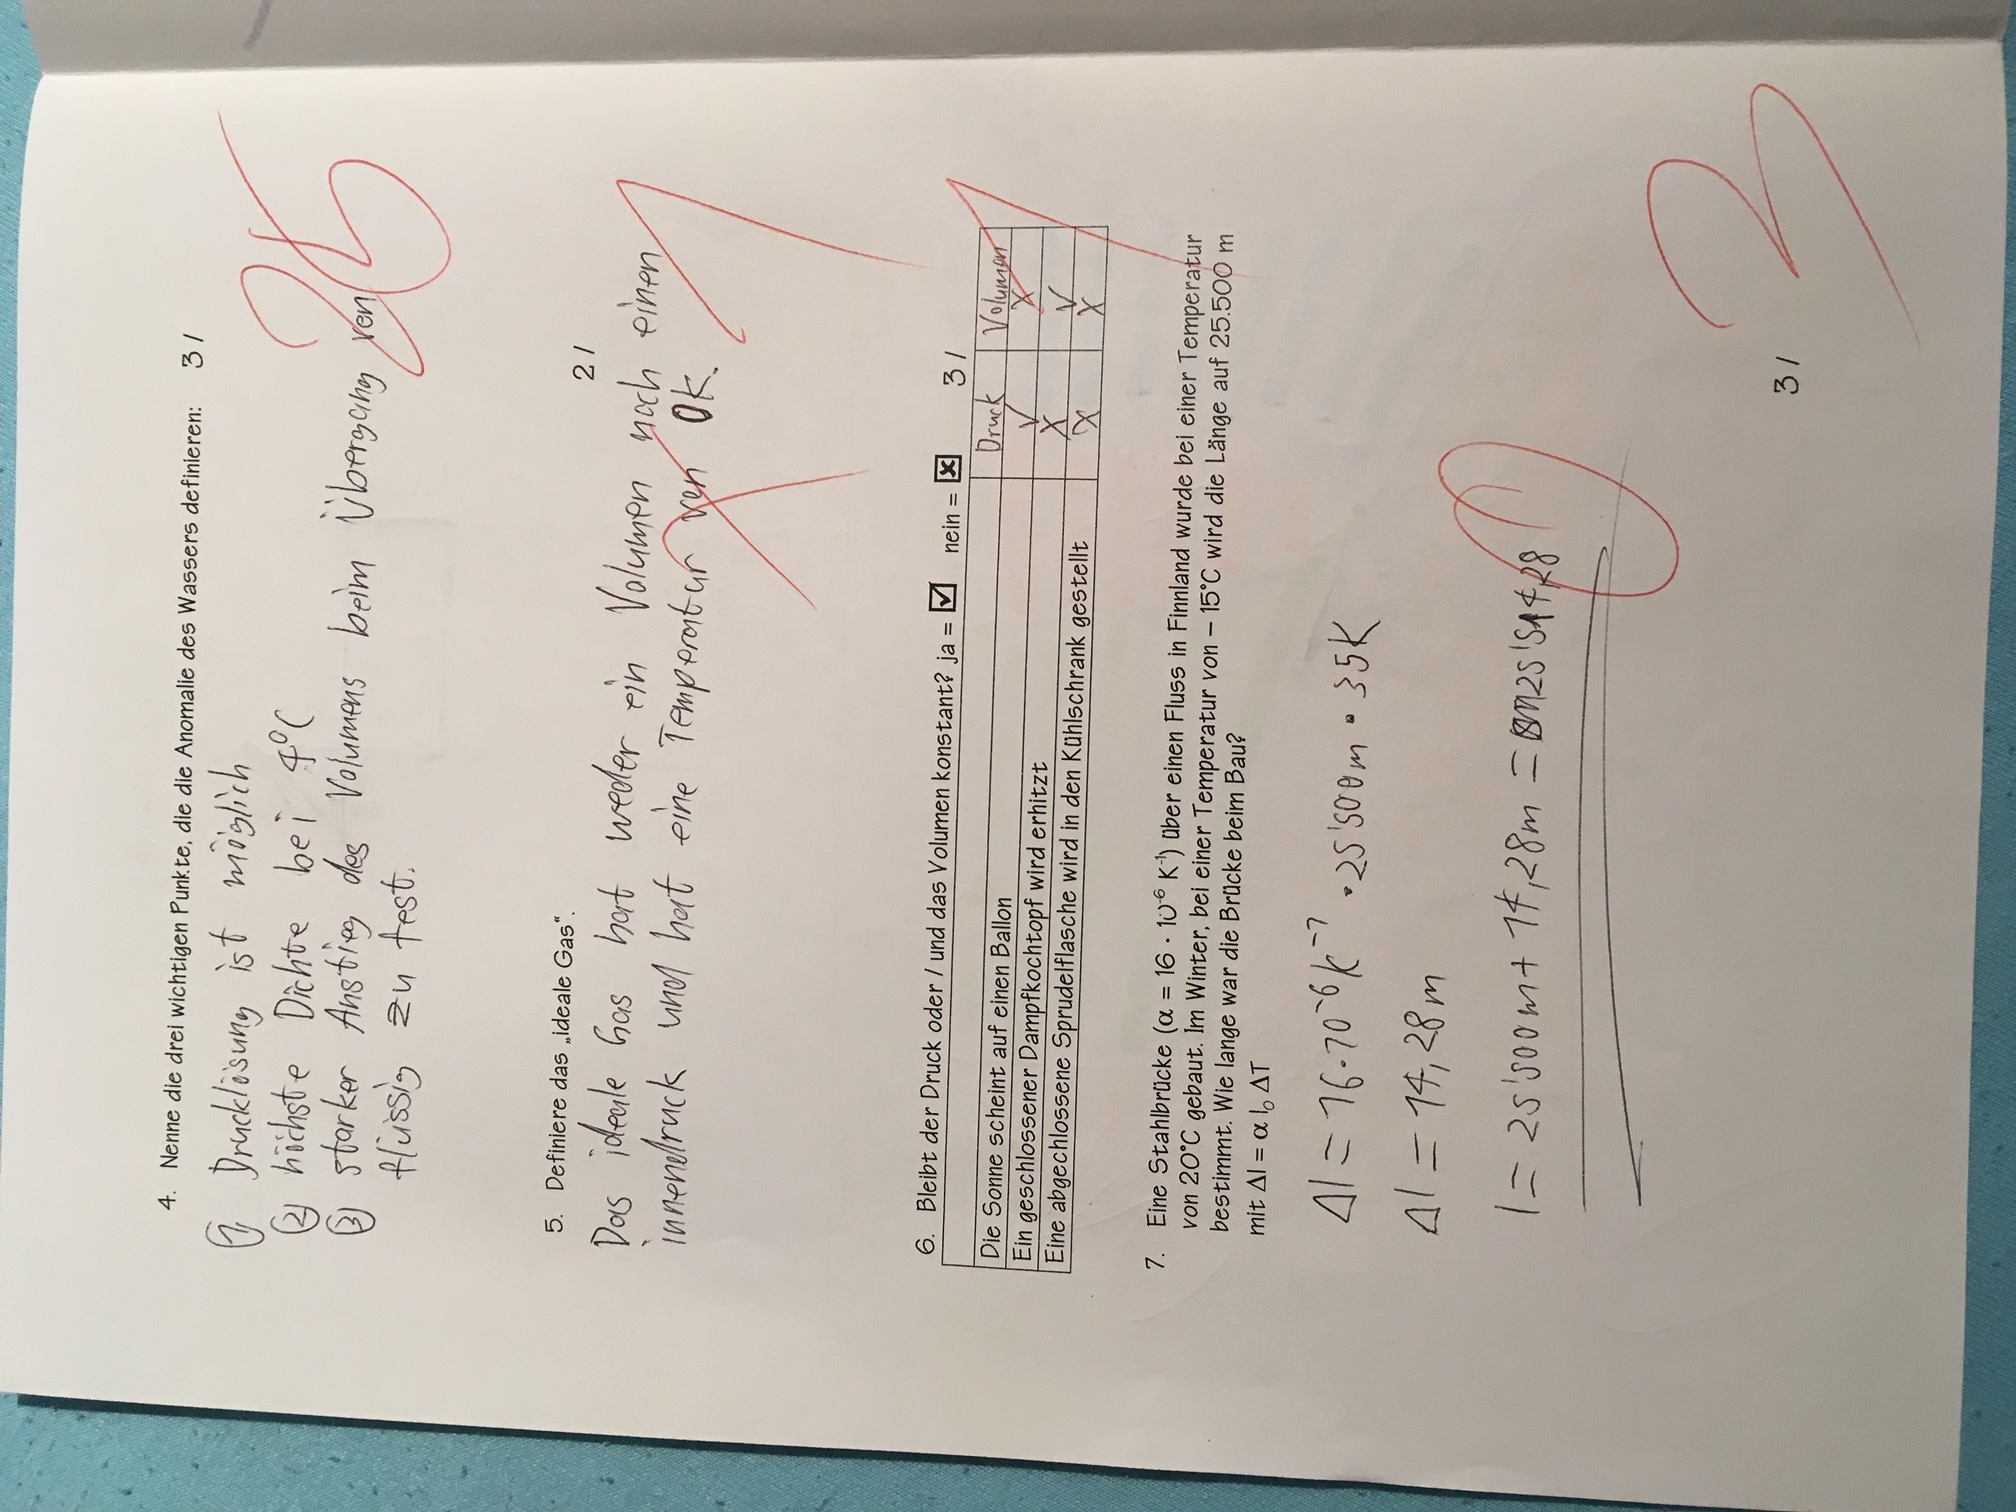 4. Nenne die drei wichtigen Punkte, die die Anomalie des Wassers definieren: 3 /
① Drucklösung ist möglich
② höchste Dichte bei 4°C
③ starker Anstieg des Volumens beim Übergang von
flüssig zu fest.
25
5. Definiere das „ideale Gas“.
2 /
Das ideale Gas hat weder ein Volumen noch einen
innendruck und hat eine Temperatur von 0K.
1
6. Bleibt der Druck oder / und das Volumen konstant? ja = ☑ nein = ☒ 3 /
Druck Volumen
Die Sonne scheint auf einen Ballon ✓ X
Ein geschlossener Dampfkochtopf wird erhitzt X ✓
Eine abgechlossene Sprudelflasche wird in den Kühlschrank gestellt X X
1
7. Eine Stahlbrücke (α = 16 · 10⁻⁶ K⁻¹) über einen Fluss in Finnland wurde bei einer Temperatur
von 20°C gebaut. Im Winter, bei einer Temperatur von – 15°C wird die Länge auf 25.500 m
bestimmt. Wie lange war die Brücke beim Bau?
mit Δl = α l₀ ΔT
Δl = 16·10⁻⁶K⁻¹ · 25'500m · 35K
Δl = 14,28m
l = 25'500m + 14,28m = 25'514,28
3 /
3